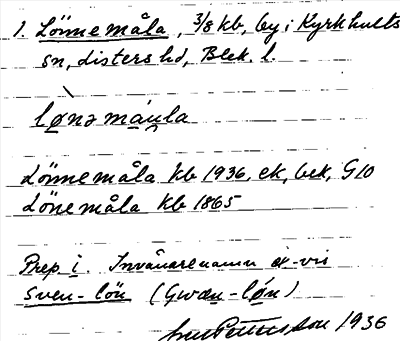 1. Lönnemåla, 3/8 kb, by i Kyrkhults
sn, Listers hd, Blek. l.
lønə máu̯la
Lönnemåla kb 1936, ek, bek, G10
Lönemåla kb 1865
Prep i. Invånarenamn ex-vis
Sven-lön (Gwæn-løn)
Pettersson 1936